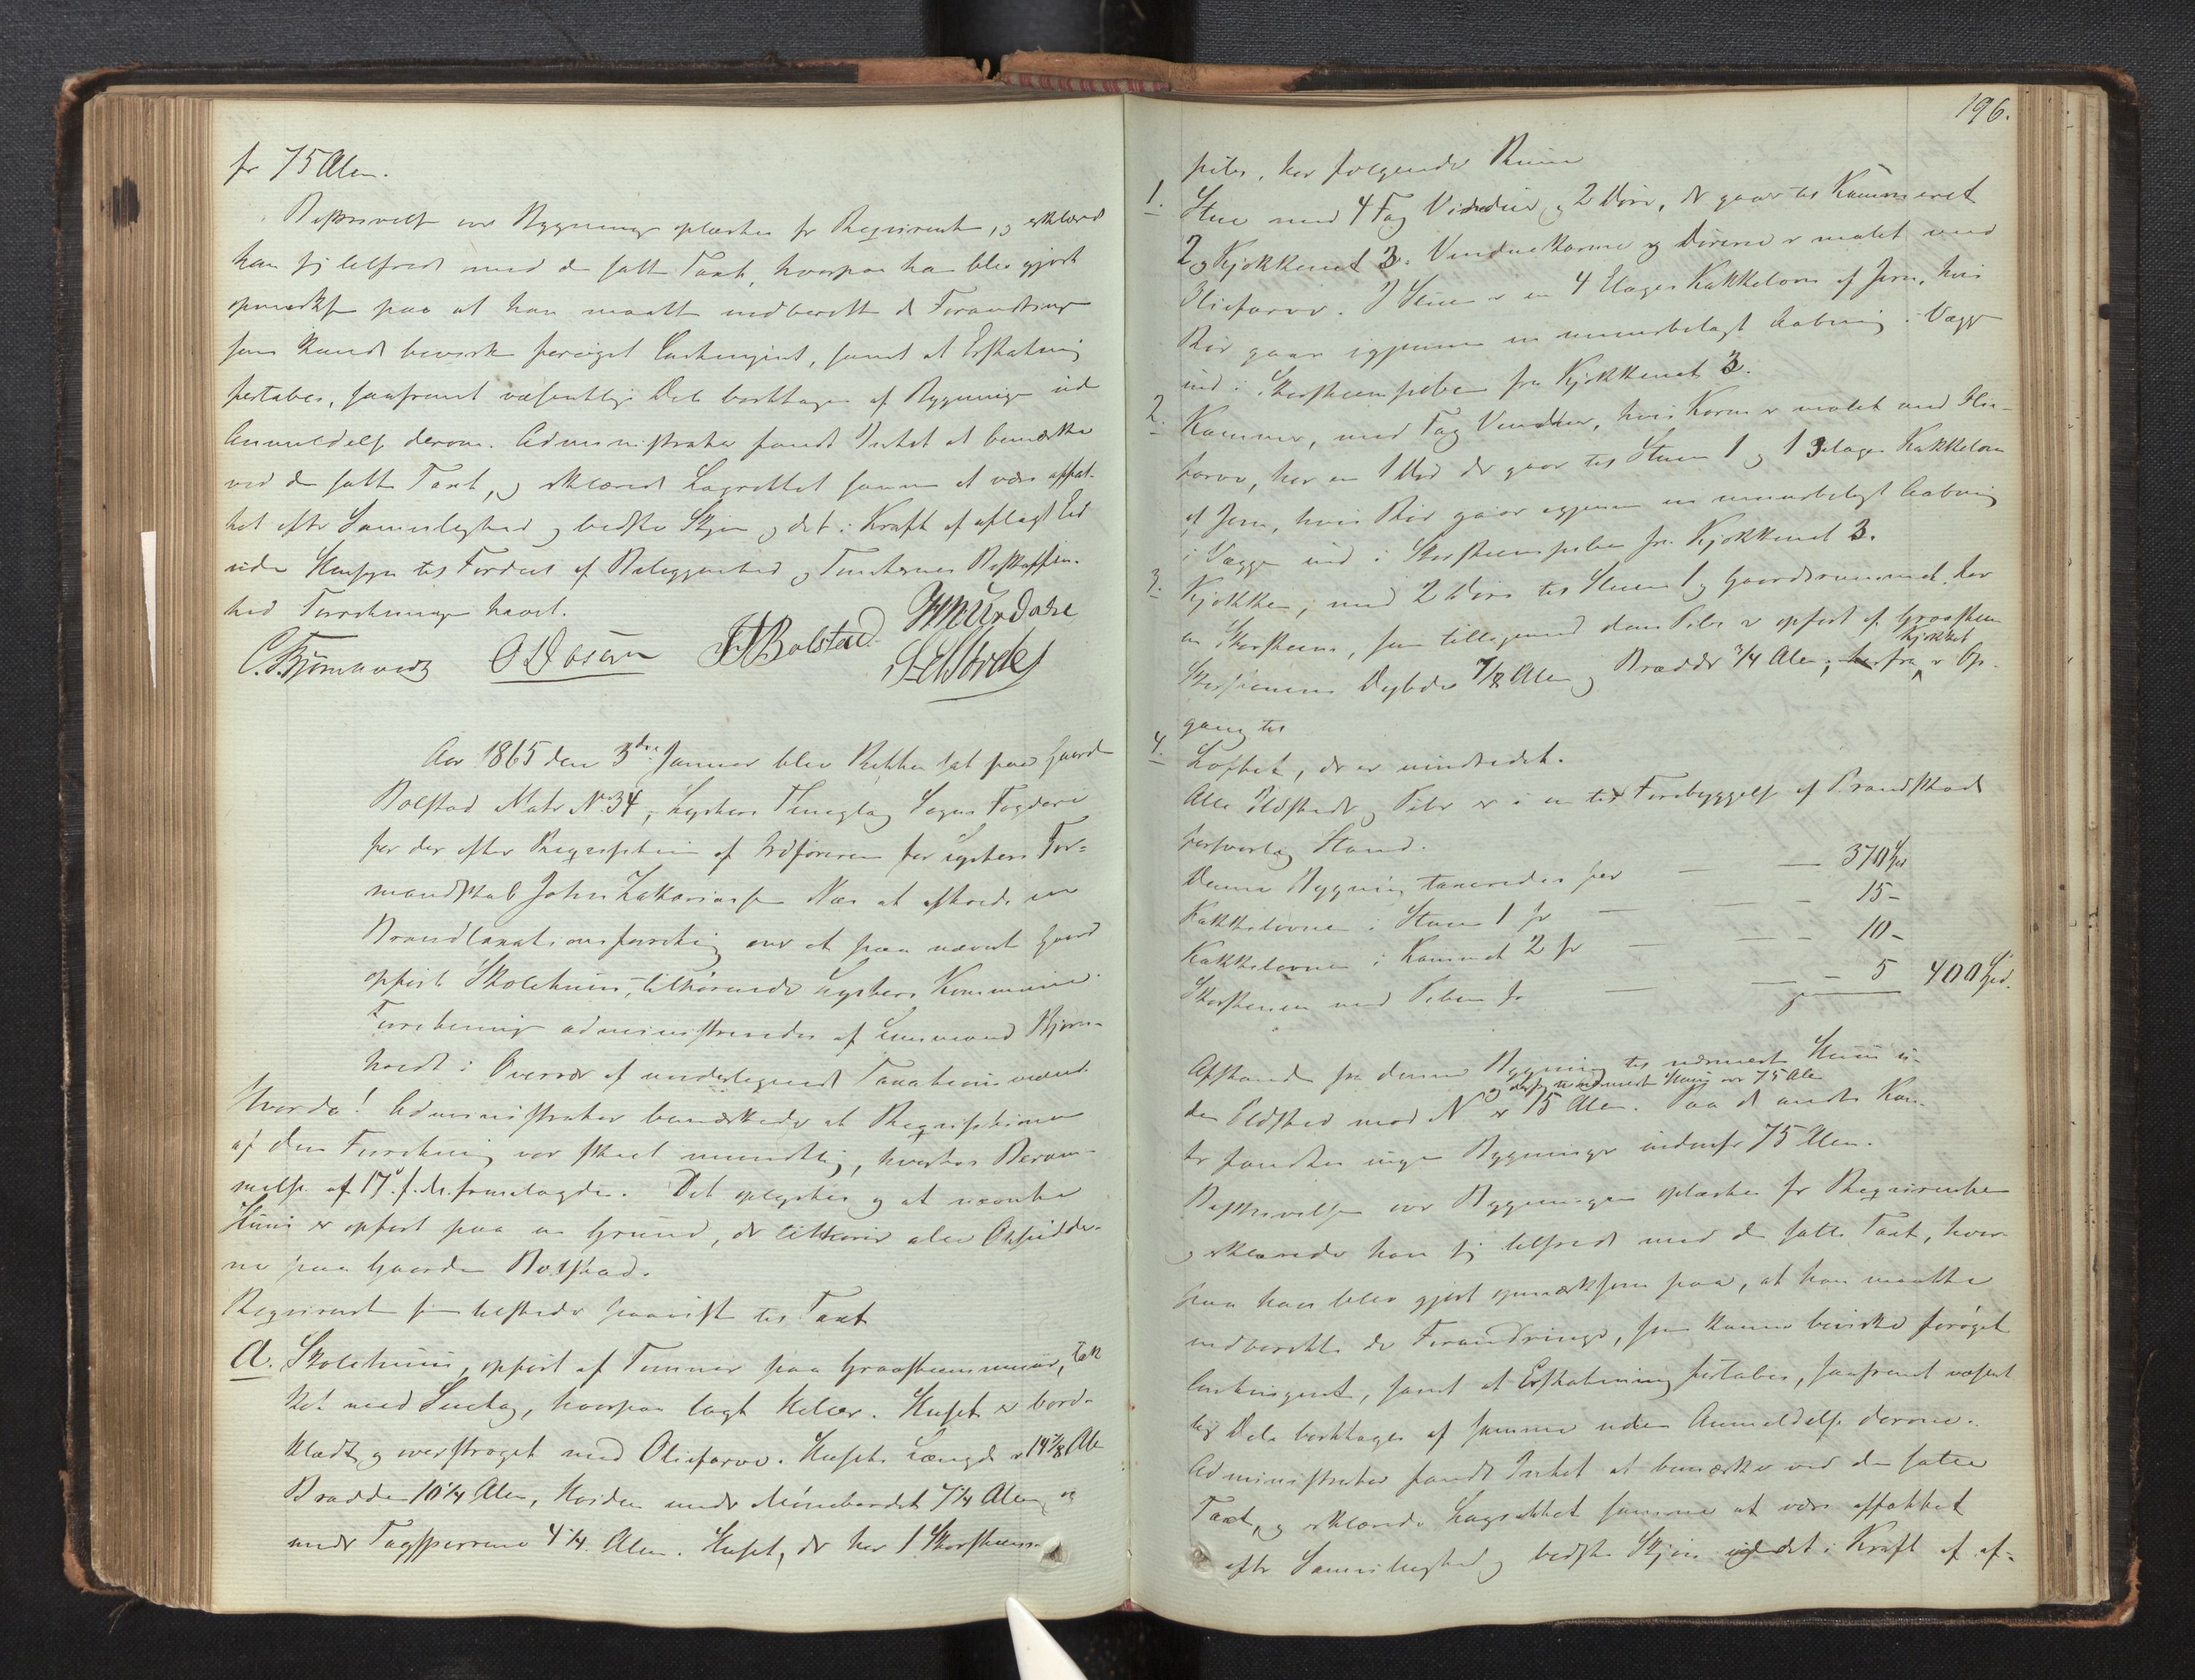 fr 75 Alen.
Beskrivelse over Bygningen oplæstes for Requirenten, og erklærede
han sig tilfreds med den satte Taxt, hvorpaa han blev gjort
opmærksom paa at han maatte indberette de Forandringer
som kunde bevirke forøget Contingent, samt at Erstatning
fortabes, saafremt væsentlige Dele borttages af Bygningen uden
Anmeldelse derom. Administrator fandt Intet at bemærke
ved den satte Taxt, og erklærede Lagrettet samme at være affat-
tet efter Samvittighed og bedste Skjøn og det i Kraft af aflagt Ed
uden Hensyn til Fordeel af Beliggenhed og Tomternes Beskaffen-
hed Forretningen hævet.
C. Bjørnhardt O D Dosen J J Bolstad
Aar 1865 den 3die Januar blev Retten sat paa Gaarden
Bolstad Matr N 34, Lysters Thinglag Sogns Fogderi
for der efter Requisition af Ordføreren for Lysters For-
mandskab John Zakariassen Næs at afholde en
Brandtaxationsforretning over et paa nævnte Gaard
opført Skolehuus, tilhørende Lysters Kommune.
Forretningen administreredes af Lensmand Bjørn-
hardt i Overvær af undertegnede Taxationsmænd.
Hvorda! Administrator bemærkede at Requisitionen
af den Forretning var skeet mundtlig, hvorhos Beram-
melse af 17 f. M. fremlagdes. Det oplystes og at nævnte
Huus er opført paa en Grund, der tilhører alle Opsidder-
ne paa Gaarden Bolstad.
Requirenten som tilstede paaviste til Taxt
A. Skolehuus, opført af Tømmer paa Graasteensmuur, tæk
ket med Sutag, hvorpaa lagt Heller. Huset er bord-
klædt og overstrøget med Oliefarve. Husets Længde er 14 7/8 Alen
Bredden 10 1/4 Alen, Høiden under Mønebordet 7 1/4 Alen, og
under Tagsperrene 4 1/4 Alen. Huset, der har 1 Skorsteens-
196.
pibe, har følgende Rum
1. Stue med 4 Fag Vinduer og 2 Døre, der gaar til Kammeret
2 og Kjøkkenet 3. Vindueskarme og Dørene er malet med
Oliefarve. I Stuen er en 4 Etages Kakkelovn af Jern, hvis
Rør gaar igjennem en muurbelagt Aabning i Væggen
ind i Skorsteenspiben fra Kjøkkenet 3.
2. Kammer, med Fag Vinduer, hvis Karm er malet med Olie-
farve, har en 1 Dør der gaar til Stuen 1 og 1 3 Etages Kakkelovn
af Jern, hvis Rør gaar igjennem en muurbelagt Aabning
i Væggen ind i Skorsteenspiben fra Kjøkkenet 3.
3. Kjøkken, med 2 Døre til Stuen 1 og Gaardsrummet, har
en Skorsteen, som tilligemed dens Pibe er opført af Graasteen
Skorstenens Dybde 7/8 Alen og Bredde 3/4 Alen, fra Kjøkket er Op-
gang til
4. Loftet, der er uindredet.
Alle Ildsteder og Piber er i en til Forebyggelse af Brandskade
forsvarlig Stand.
Denne Bygning taxeredes for — — 370 Spd
Kakkelovnen i Stuen 1 for — — - 15 -
Kakkelovnen i Kammeret 2 for — — - 10 -
Skorstenen med Piben for — — - 5 400 Spd.
Afstanden fra denne Bygning til nærmeste Huus u-
den Ildsted mod N er 15 Alen. Paa de andre Kan-
og derfra til nærmeste Huus over 75 Alen
ter fandtes ingen Bygninger indenfor 75 Alen.
Beskrivelsen over Bygningen oplæstes for Requirenten
og erklærede han sig tilfreds med den satte Taxt, hvor-
paa han blev gjort opmærksom paa, at han maatte
indberette de Forandringer, som kunne bevirke forøget
Contingent, samt at Erstatning fortabes, saafremt væsent
lige Dele borttages af samme uden Anmeldelse derom.
Administrator fandt Intet at bemærke ved den satte
Taxt, og erklærede Lagrettet samme at være affattet
efter Samvittighed og bedste Skjøn og det i Kraft af af-